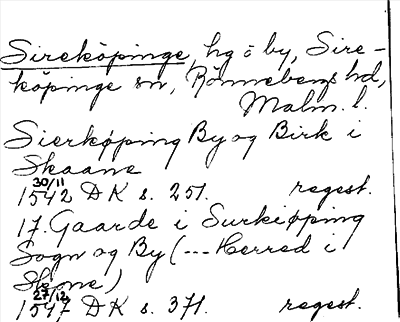 Sireköpinge, hg o by, Sire-
köpinge sn, Rönnebergs hd,
Malm. l.
Sierkøping By og Birk i
Skaane
30/11
1542 DK s. 251. regest.
17. Gaarde i Surkiøping
Sogn og By (--- Herred i
Skone)
27/12
1547 DK s. 371. regest.